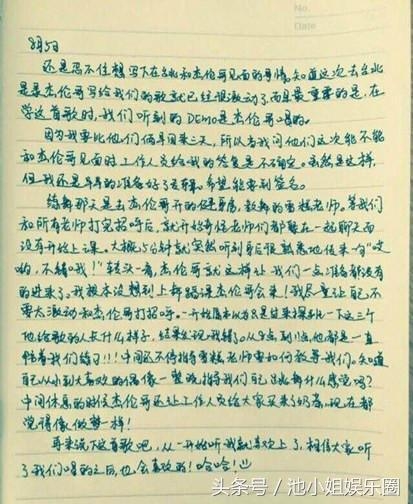 No.
Date
8月5日
还是忍不住想写下在台北和杰伦哥见面的事情。知道这次去台北
是录杰伦哥写给我们的歌就已经很激动了。而且最重要的是,在
学这首歌时,我们听到的DEMO是杰伦哥唱的。
因为我要比他们俩早回来三天,所以当我问他们这次能不能
和杰伦哥见面时工作人员给我的答复是不确定。虽然是这样,
但我还是早早的准备好了专辑。希望能要到签名。
练舞那天是去杰伦哥开的 教舞的雪糕老师。等我们
和所有老师打完招呼后,就开始哥俩老师们都聚在一起聊天而
没有开始上课。大概5分钟就突然听到身后很熟悉地传来一句"哎
哟,不错哦!"转头一看,杰伦哥就这样让我们一点准备都没有
的进来了。我根本没想到上舞蹈课杰伦哥会来!我尽量让自己不
要太激动和杰伦哥打招呼。一开始原本以为只是过来探班一下这三个
他给歌的人长什么样子,结果发现我错了。从 点到 点他都是一直
陪着我们练习!!!中间还不停指导雪糕老师要如何教导我们。知道
自己从小到大喜欢的偶像一整晚指导我们自己跳舞什么感觉吗?
中间休息的时候杰伦哥还让工作人员给大家买来了奶茶。现在都
觉得像做梦一样!
再来说下这首歌吧,从一开始听我就喜欢上了,相信大家听
了我们唱的之后,也会喜欢的!哈哈!
头条号 / 池小姐娱乐圈